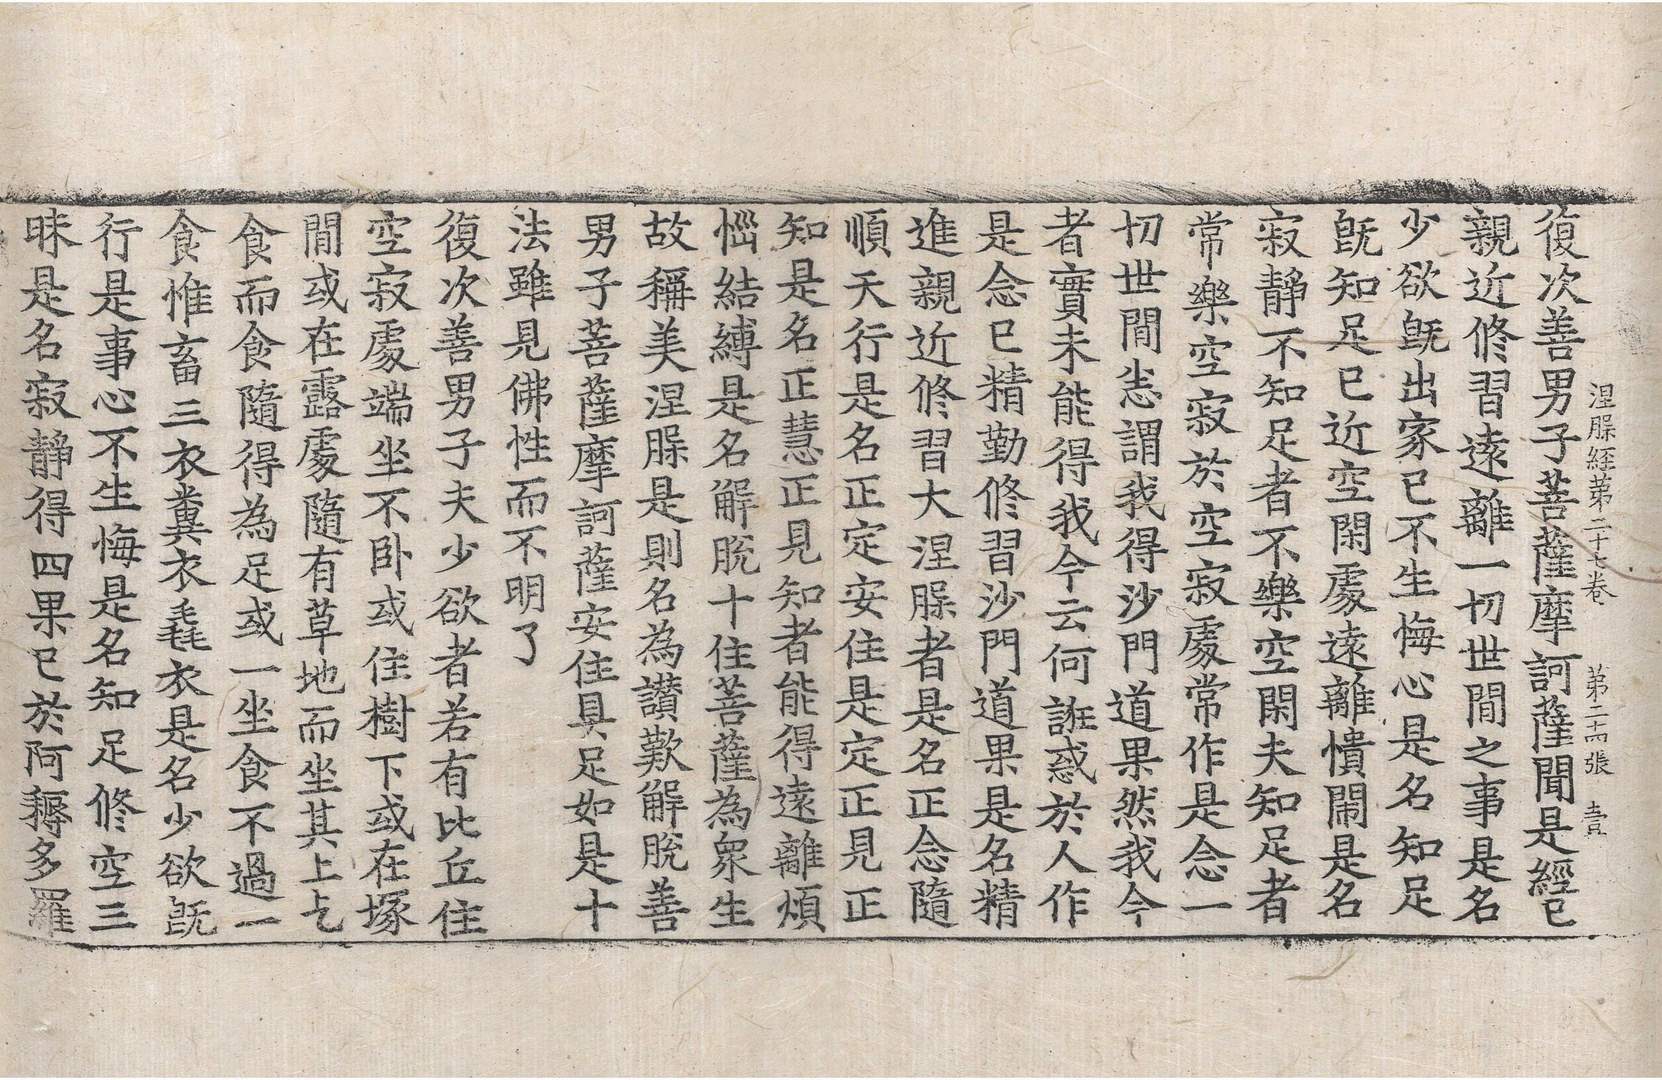 涅槃経苐二十七卷 苐二十四張 壹
復次善男子菩薩摩訶薩聞是經已
親近修習遠離一切世間之事是名
少欲旣出家已不生悔心是名知足
旣知足已近空閑處遠離憒閙是名
寂靜不知足者不樂空閑夫知足者
常樂空寂於空寂處常作是念一
切世間悉謂我得沙門道果然我今
者實未能得我今云何誑惑於人作
是念已精勤修習沙門道果是名精
進親近修習大涅槃者是名正念隨
順天行是名正定安住是定正見正
知是名正慧正見知者能得遠離煩
惱結縛是名解脫十住菩薩為衆生
故稱美涅槃是則名為讃歎解脫善
男子菩薩摩訶薩安住具足如是十
法雖見佛性而不明了
復次善男子夫少欲者若有比丘住
空寂處端坐不卧或住樹下或在塚
間或在露處隨有草地而坐其上乞
食而食隨得為足或一坐食不過一
食惟畜三衣糞衣毳衣是名少欲旣
行是事心不生悔是名知足修空三
昧是名寂靜得四果已於阿耨多羅